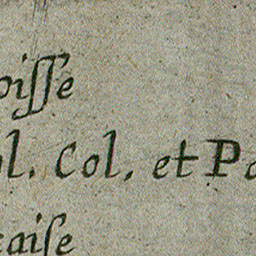 oiſſe
ol. Col. et Pa
caiſe